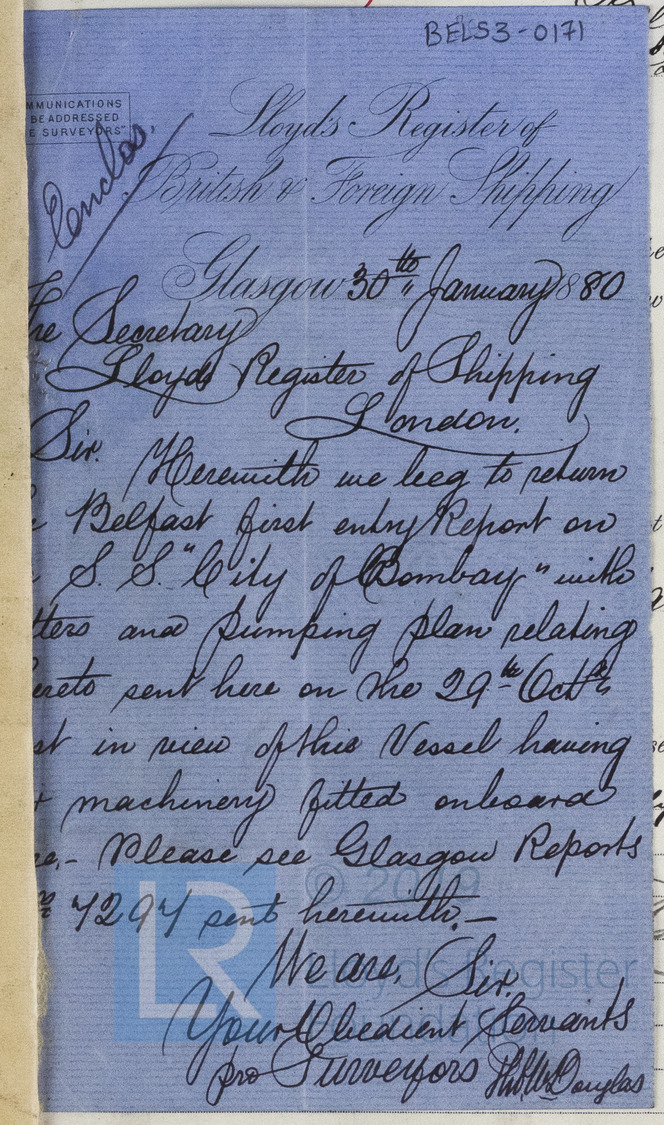 BELS3-0171
MMUNICATIONS
BE ADDRESSED
E SURVEYORS"
Enclos.
Lloyd's Register of
British & Foreign Shipping
Glasgow 30th January 1880
he Secretary
Lloyds Register of Shipping
London.
Sir. Herewith we beg to return
Belfast first entry Report on
S. S. "City of Bombay" with
tters and pumping plan relating
ereto sent here on the 29th Octr
st in view of this Vessel having
machinery fitted onboard
re,- Please see Glasgow Reports
No 4294 sent herewith.-
We are, Sir.
Your Obedient Servants
pro Surveyors Douglas
LR
© 2019
Lloyd's Register
Foundation